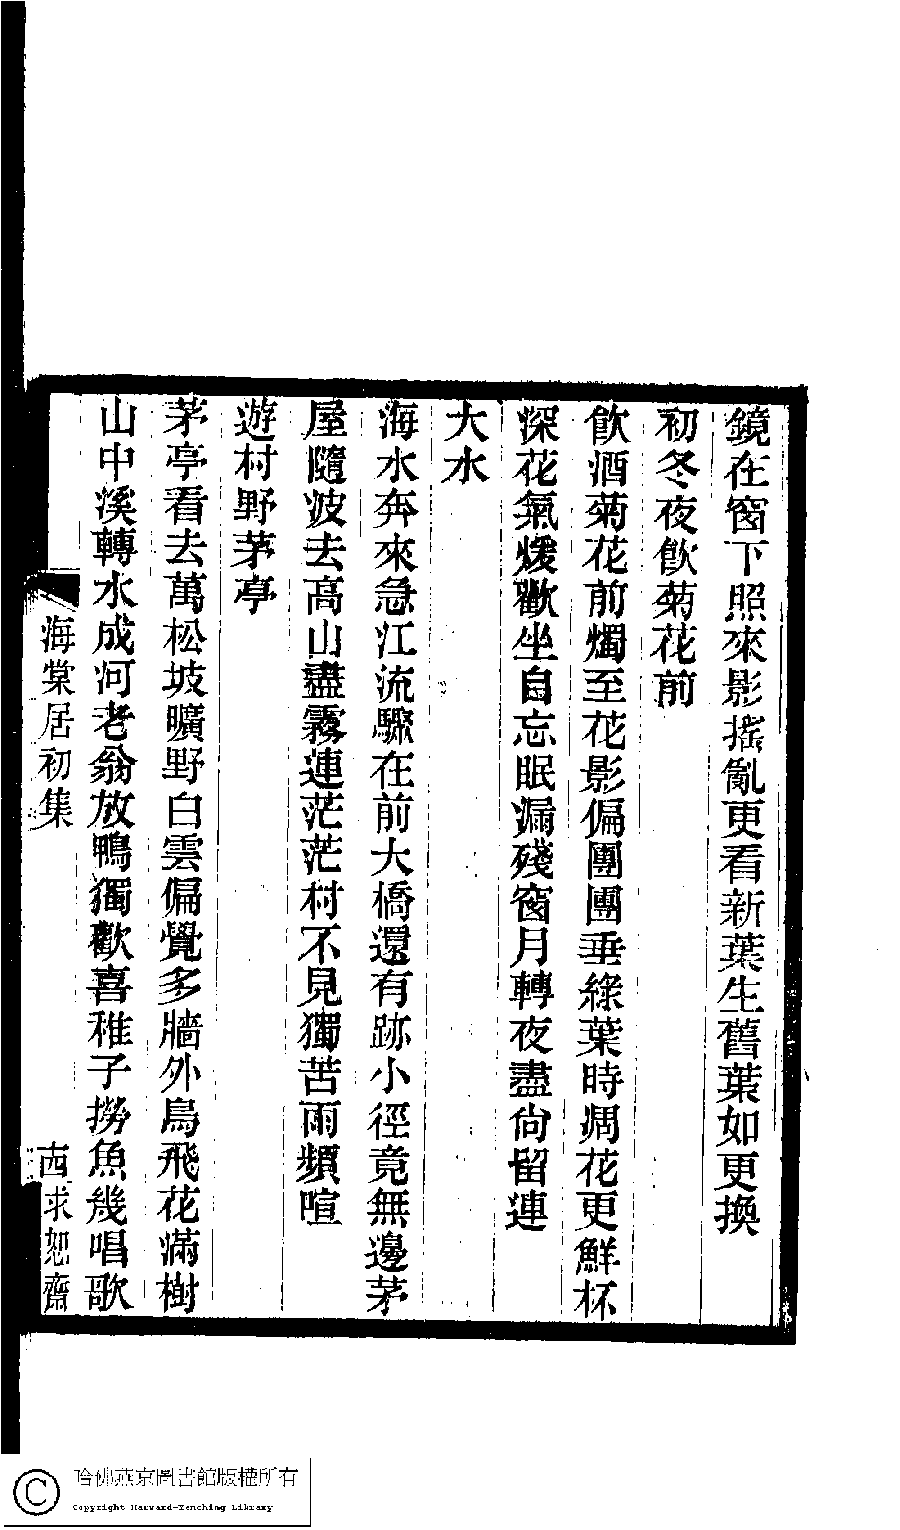 鏡在窗下照來影搖亂更看新葉生舊葉如更換
初冬夜飮菊花前
飮酒菊花前燭至花影偏團團垂綠葉時凋花更鮮杯
深花氣煖歡坐自忘眠漏殘窗月轉夜盡尙留連
大水
海水奔來急江流驟在前大橋還有跡小徑竟無邊茅
屋隨波去高山盡霧連茫茫村不見獨苦雨頻喧
遊村野茅亭
茅亭看去萬松坡曠野白雲偏覺多牆外鳥飛花滿樹
山中溪轉水成河老翁放鴨獨歡喜稚子撈魚幾唱歌
海棠居初集
求恕齋
哈佛燕京圖書館版權所有
Copyright Harvard-Yenching Library